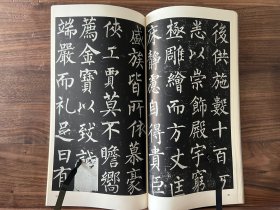 後供施數十百
悉以崇飾殿宇窮
極雕繪而方丈匡
床靜慮自得貴臣
盛族皆所依慕豪
俠工賈莫不瞻嚮
薦金寶以致誠
端嚴而礼足日有